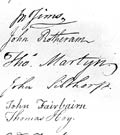 Jn Jones.
John Rotheram
Thos. Martyn
John Sibthorp
John Fairbairn
Thomas Hoy.